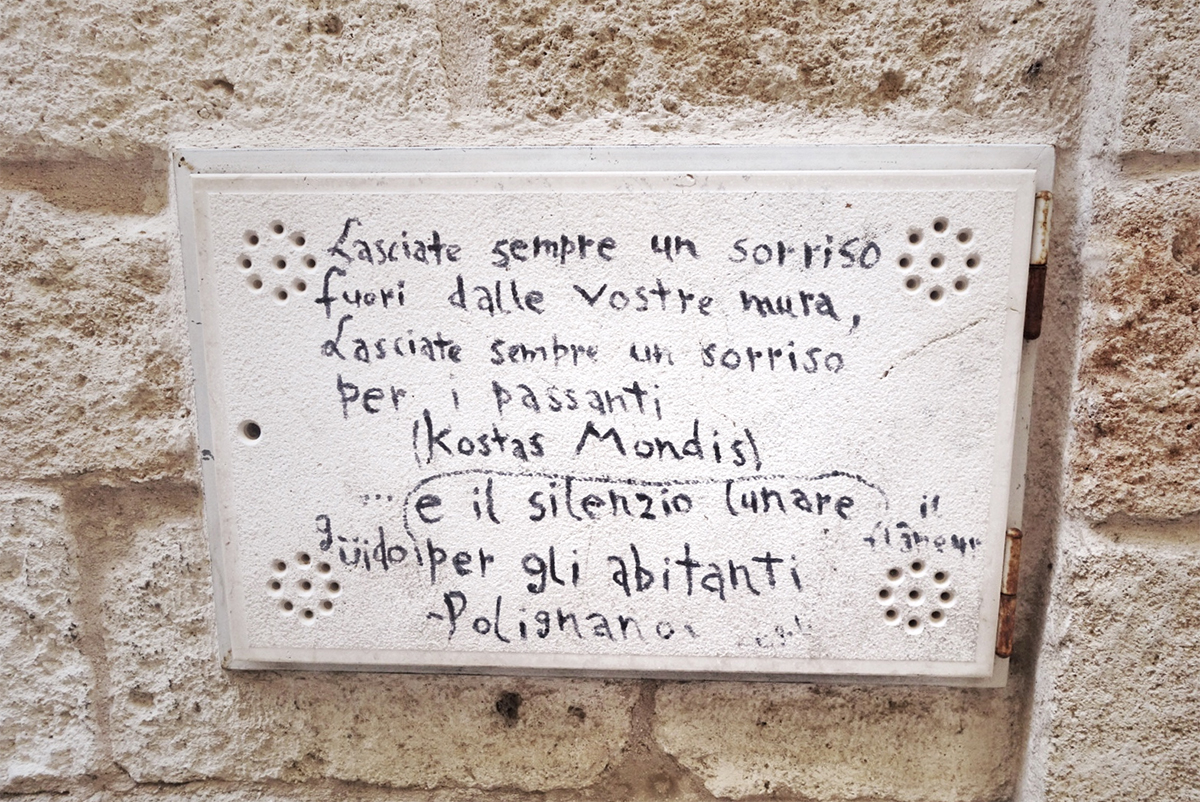 Lasciate sempre un sorriso
fuori dalle vostre mura,
Lasciate sempre un sorriso
per i passanti
(Kostas Mondis)
... e il silenzio lunare il
güido per gli abitanti flâneur
-Polignano